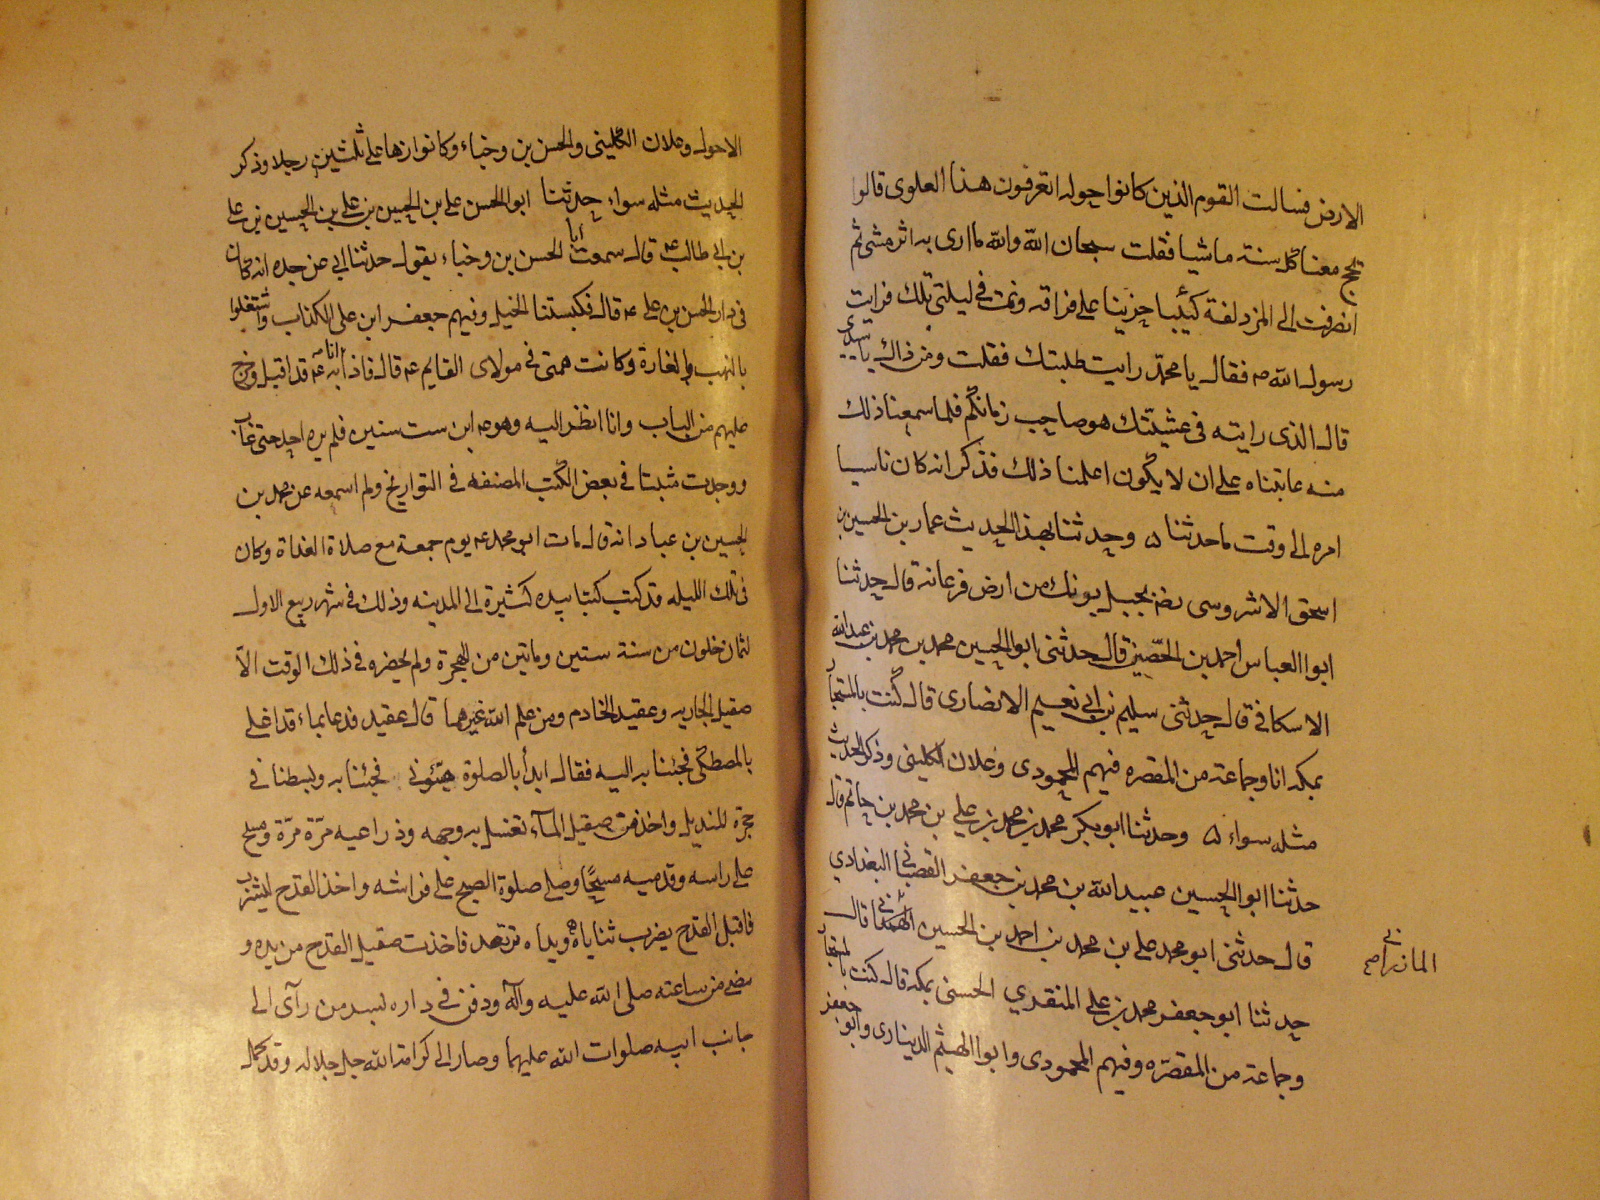 الارض فسالت القوم الذين كانوا حوله اتعرفون هذا العلوى قالوا
يحج معنا كل سنة ماشيا فقلت سبحان الله والله ما ارى به اثر مشى ثم
انصرفت الى المزدلفة كئيبا حزينا على فراقه ونمت فى ليلتى تلك فرايت
رسول الله ص فقال يا محمد رايت طلبتك فقلت ومن ذاك يا سيدى
قال الذى رايته فى عشيتك هو صاحب زمانكم فلما سمعنا ذلك
منه عاتبناه على ان لا يكون اعلمنا ذلك فذكر انه كان ناسيا
امره الى وقت ما حدثنا ۵ وحدثنا بهذا الحديث عمار بن الحسين بن
اسحق الاشروسى بجبل بوتك من ارض فرغانة قال حدثنا
ابوا العباس احمد بن الخضر قال حدثنى ابوا الحسين محمد بن محمد بن عبد الله
الاسكافى قال حدثنى سليم بن ابى نعيم الانصارى قال كنت بالمستجار
بمكه انا وجماعة من المقصره فيهم المحمودى وعلان الكلينى وذكر الحديث
مثله سواء ۵ وحدثنا ابو بكر محمد بن محمد بن على بن محمد بن حاتم قال
حدثنا ابوا الحسين عبيد الله بن محمد بن جعفر القصبانى البغدادي
قال حدثنى ابو محمد على بن محمد بن احمد بن الحسين قال
المازرانى
حدثنا ابو جعفر محمد بن على المنقدي الحسنى بمكه قال كنت بالمستجار
وجماعة من المقصره وفيهم المحمودى وابوا الهيثم الدينارى وابو جعفر
الاحول وعلان الكلينى والحسن بن وجناء وكانوا زهاء على ثلثين رجلا وذكر
الحديث مثله سواء حدثنا ابوا الحسن على بن الحسين بن على بن الحسين بن على
بن ابى طالب ع قال سمعت أبا الحسن بن وجناء يقول حدثنا ابى عن جده انه كان
فى دار الحسن بن على ع قال فكبستنا الخيل وفيهم جعفر ابن على الكذاب واشتغلوا
بالنهب والغارة وكانت همتى فى مولاى القايم ع قال فاذا انا به ع قد اقبل وخرج
عليهم من الباب وانا انظر اليه وهو ع ابن ست سنين فلم يره احد حتى غاب
ووجدت مثبتا فى بعض الكتب المصنفه فى التواريخ ولم اسمعه عن محمد بن
الحسين بن عباد انه قال مات ابو محمد ع يوم جمعة مع صلاة الغداة وكان
فى تلك الليله قد كتب كتبا بيده كثيرة الى المدينه وذلك فى شهر ربيع الاول
لثمان خلون من سنة ستين وماتين من الهجرة ولم يحضره فى ذلك الوقت الا
صقيل الجاريه وعقيد الخادم ومن علم الله غيرهما قال عقيد فدعا بماء قد اغلى
بالمصطكى فجئنا به اليه فقال ابدأ بالصلوة جيئونى فجئنا به وبسطنا فى
حجره المنديل واخذ من صقيل الماء فغسل به وجهه وذراعيه مرّة مرّة ومسح
على راسه وقدميه مسحًا وصلى صلوة الصبح على فراشه واخذ القدح ليشرب
فاقبل القدح يضرب ثناياه ويداه ترتعد فاخذت صقيل القدح من يده و
مضى من ساعته صلى الله عليه وآله ودفن فى داره بسر من رآى الى
جانب ابيه صلوات الله عليهما وصار الى كرامة الله جل جلاله وقد كمل